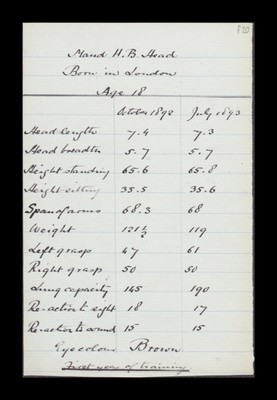 Maud H. B. Head
Born in London
Age 18
October 1892 July 1893
Head length 7.4 7.3
Head breadth 5.7 5.7
Height standing 65.6 65.8
Height sitting 35.5 35.6
Span of arms 68.3 68
Weight 121½ 119
Left grasp 47 61
Right grasp 50 50
Lung capacity 145 190
Re-action to sight 18 17
Re-action to sound 15 15
Eye colour Brown
First year of training